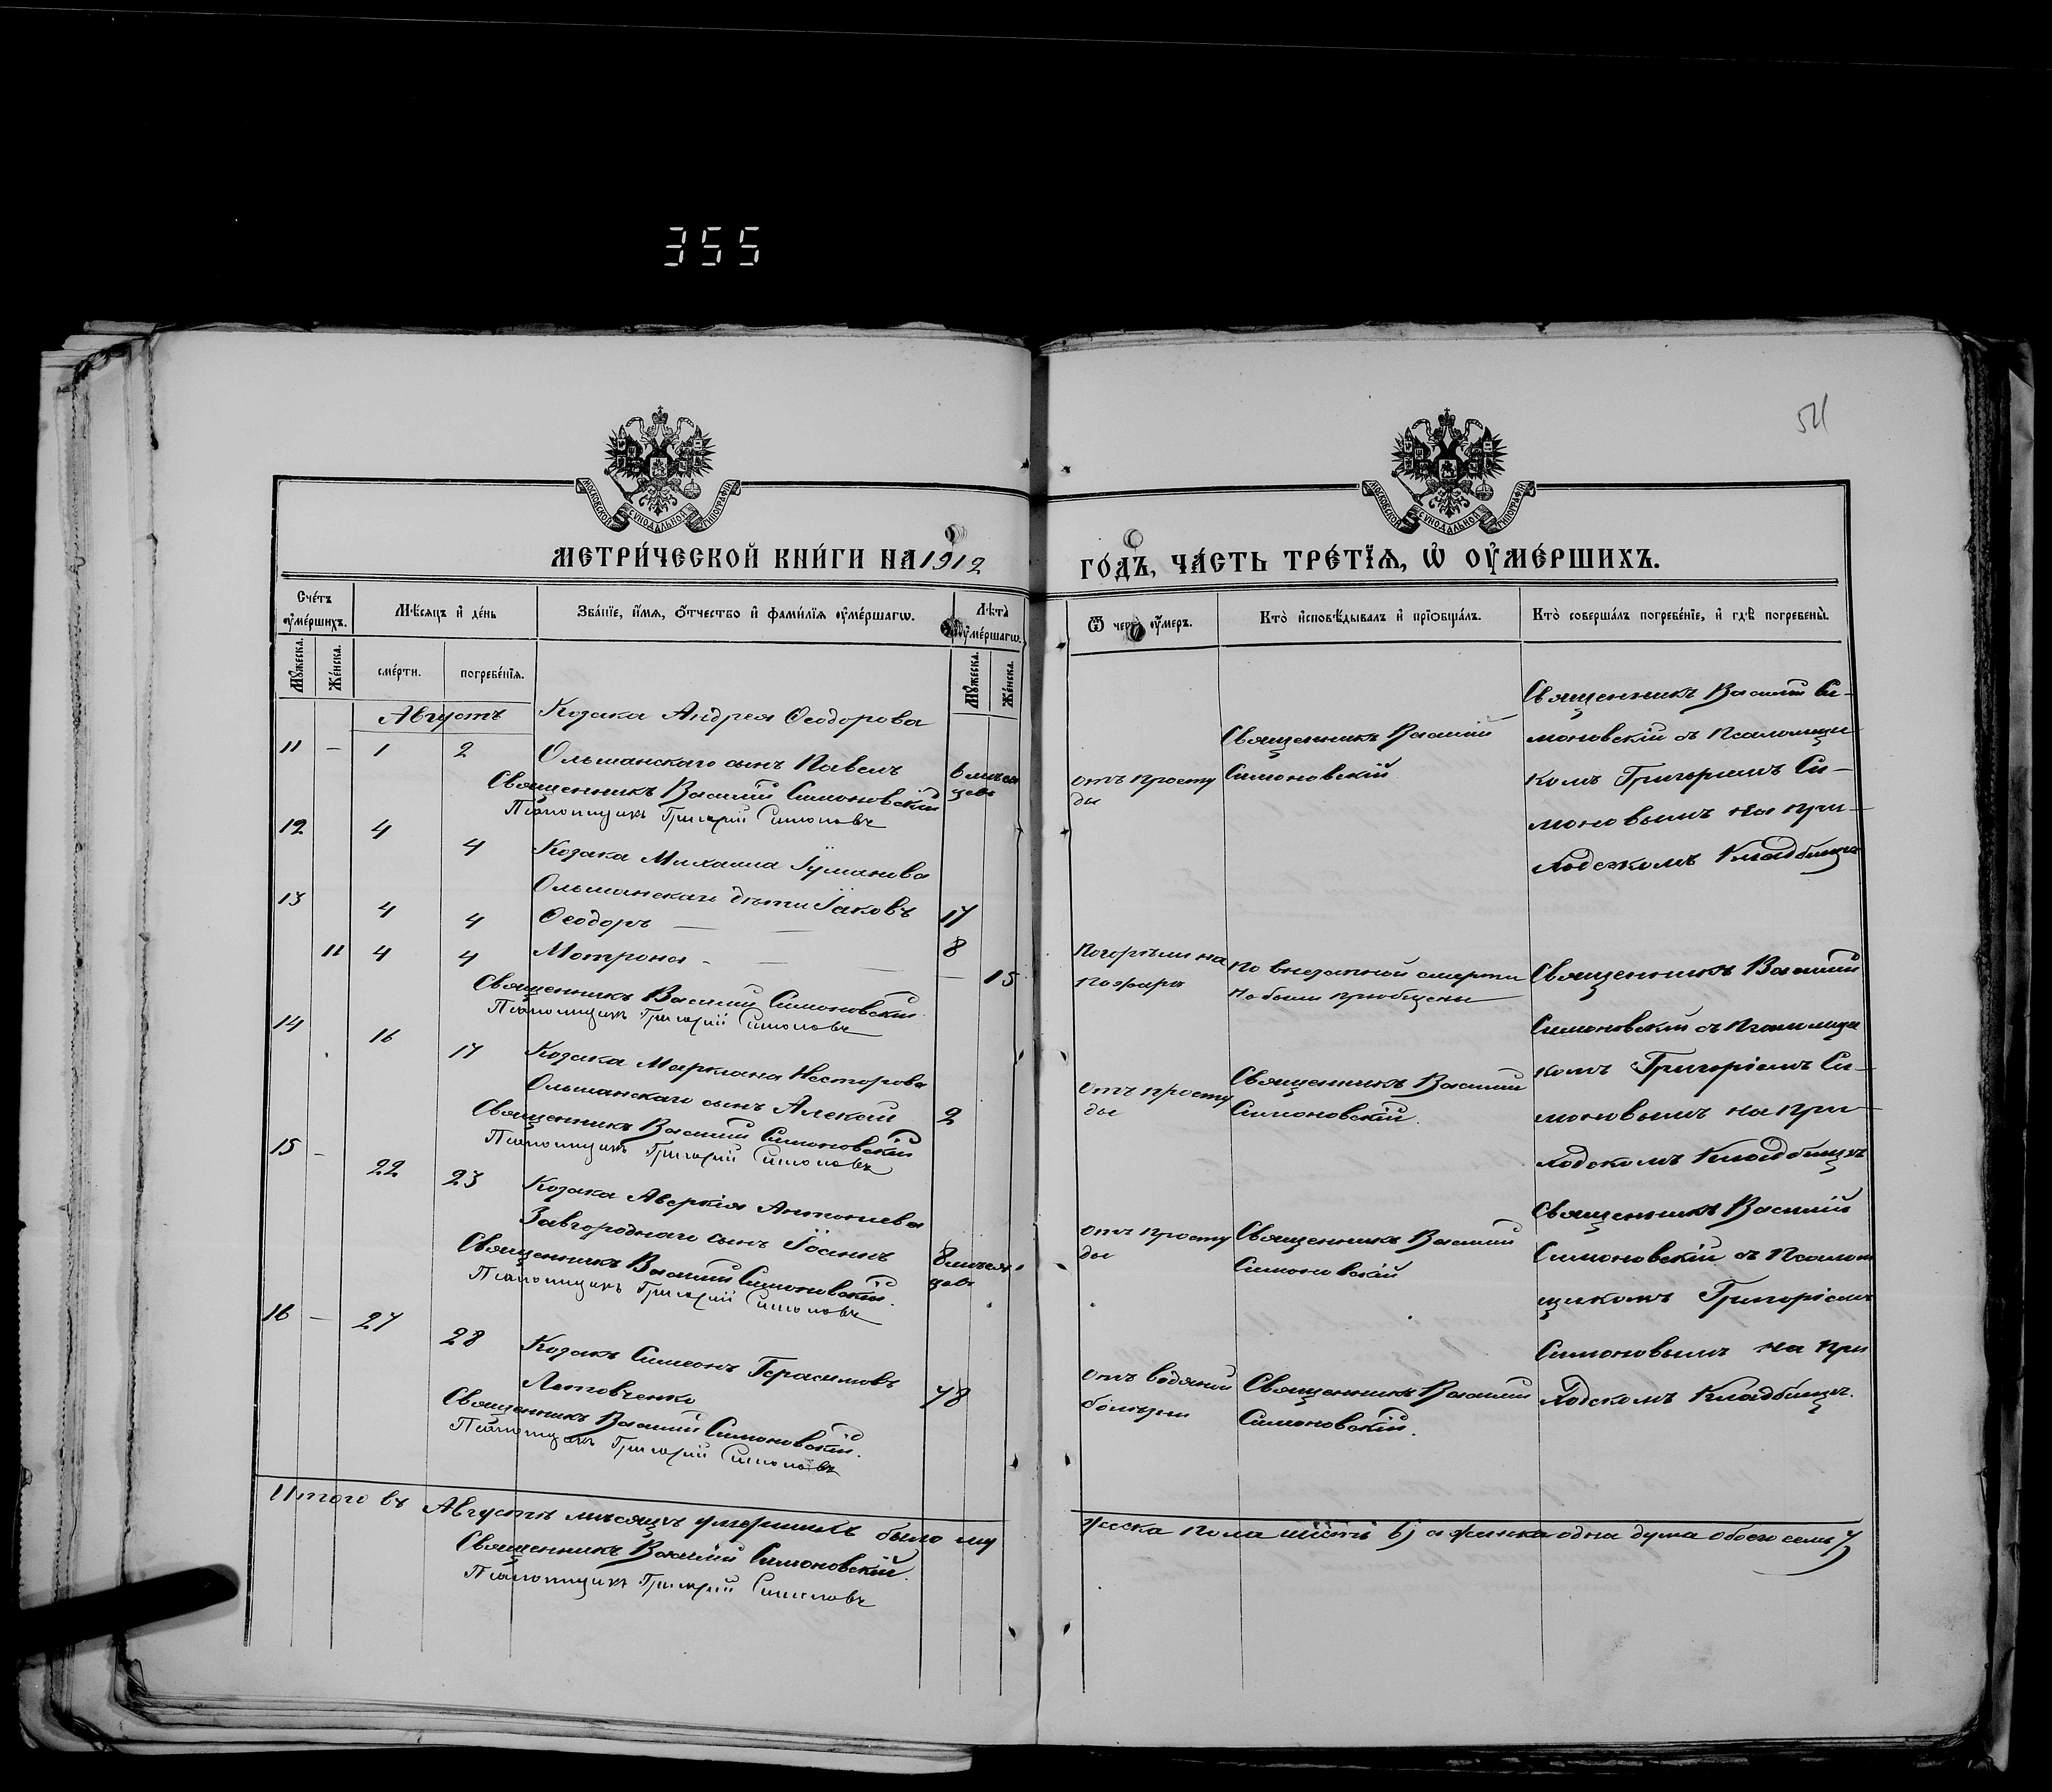 355
54
МОСКОВСКОЙ СѴНОДАЛЬНОЙ ТИПОГРАФІИ
МОСКОВСКОЙ СѴНОДАЛЬНОЙ ТИПОГРАФІИ
МЕТРИ́ЧЕСКОЙ КНИ́ГИ НА 1912
ГО́ДЪ, ЧА́СТЬ ТРЕ́ТЇѦ, Ѡ҆ ОУ҆МЕ́РШИХЪ.
Сче́тъ оу҆ме́ршихъ.
Мꙋ́жеска.
Же́нска.
Мѣ́сяцъ и҆ де́нь
сме́рти.
погребе́нїѧ.
Зва́нїе, и҆́мѧ, ѻ҆́тчество и҆ фами́лїѧ оу҆ме́ршагѡ.
Лѣ́та оу҆ме́ршагѡ.
Мꙋ́жеска.
Же́нска.
Ѿ чегѡ̀ оу҆́меръ.
Кто̀ и҆сповѣ́дывалъ и҆ прїѻбща́лъ.
Кто̀ соверша́лъ погребе́нїе, и҆ гдѣ̀ погребены̀.
Августъ
11 — 1 2 Козака Андрея Ѳеодорова
Ольшанскаго сынъ Павелъ 6 мѣся
цевъ
Священникъ Василій Симоновскій
Псаломщикъ Григорій Симоновъ
отъ просту
ды
Священникъ Василій
Симоновскій
Священникъ Василій Си-
моновскій съ Псаломщи-
комъ Григоріемъ Си-
моновымъ на при-
ходскомъ кладбищѣ
12 4 4 Козака Михаила
Ольшанскаго дѣти Іаковъ 17
13 4 4 Ѳеодоръ — — 8
11 4 4 Мотрона - — — — 15
Священникъ Василій Симоновскій
Псаломщикъ Григорій Симоновъ
Погорѣли на
пожарѣ
по внезапной смерти
не были пріобщены
Священникъ Василій
Симоновскій съ Псаломщи
комъ Григоріемъ Си-
моновымъ на при-
ходскомъ кладбищѣ
14 16 17 Козака Маркіана Несторова
Ольшанскаго сынъ Алексій 2
Священникъ Василій Симоновскій
Псаломщикъ Григорій Симоновъ
отъ просту
ды
Священникъ Василій
Симоновскій.
15 - 22 23 Козака Аверкія Антоніева
Завгороднаго сынъ Іоаннъ 8 мѣся-
цевъ
Священникъ Василій Симоновскій.
Псаломщикъ Григорій Симоновъ
отъ просту
ды
Священникъ Василій
Симоновскій
Священникъ Василій
Симоновскій съ Псалом
щикомъ Григоріемъ
Симоновымъ на при
ходскомъ кладбищѣ.
16 — 27 28 Козакъ Симеонъ Герасимовъ
78
Священникъ Василій Симоновскій.
Псаломщикъ Григорій Симоновъ
отъ водяной
болѣзни
Священникъ Василій
Симоновскій.
Итого въ Августѣ мѣсяцѣ умершихъ было му
жеска пола шесть 6) а женска одна душа обоего семь 7)
Священникъ Василій Симоновскій.
Псаломщикъ Григорій Симоновъ